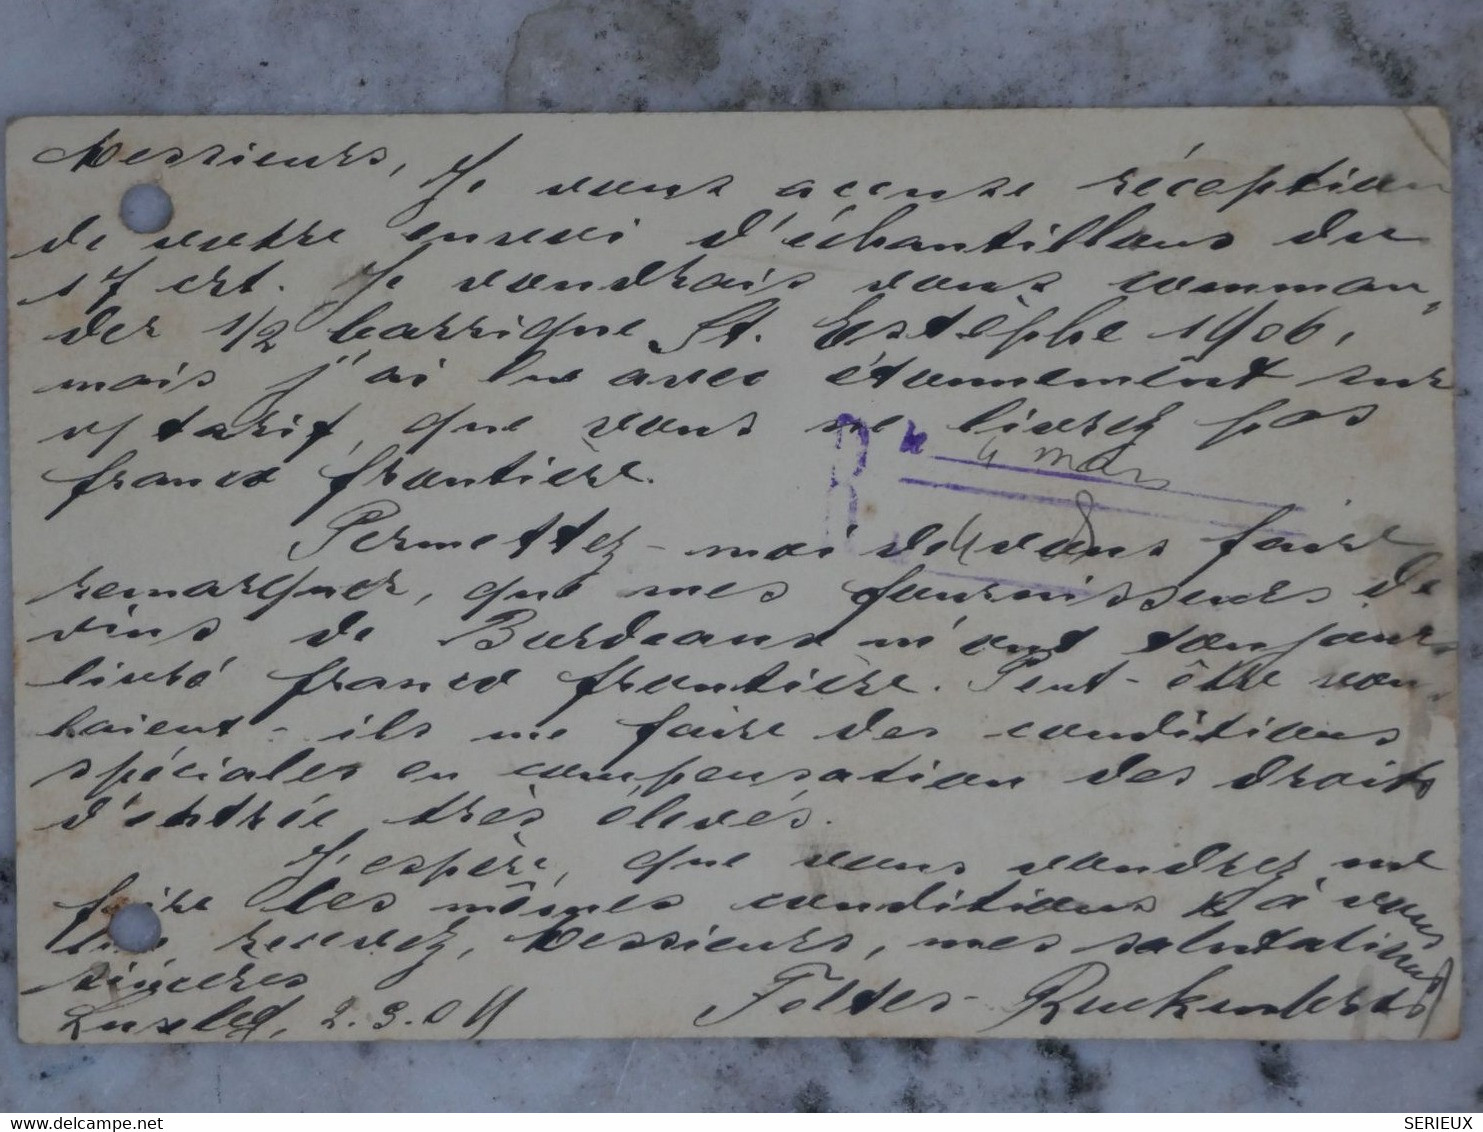 Messieurs,
Je vous accuse réception
de votre envoi d'échantillons du
17 crt. Je voudrais vous comman-
der 1/2 barrique St. Estèphe 1906,
mais j'ai lu avec étonnement sur
v/ tarif, que vous ne livrez pas
franco frontière.
Rx 4 mars
Permettez-moi de vous faire
remarquer, que mes fournisseurs de
vins de Bordeaux m'ont toujours
livré franco frontière. Peut-être vou-
laient-ils me faire des conditions
spéciales en compensation des droits
d'entrée très élevés.
J'espère, que vous voudrez me
faire les mêmes conditions & à vous
lire recevez, Messieurs, mes salutations
sincères
Luxbg, 2.3.08 Feltes-
SERIEUX
delcampe.net